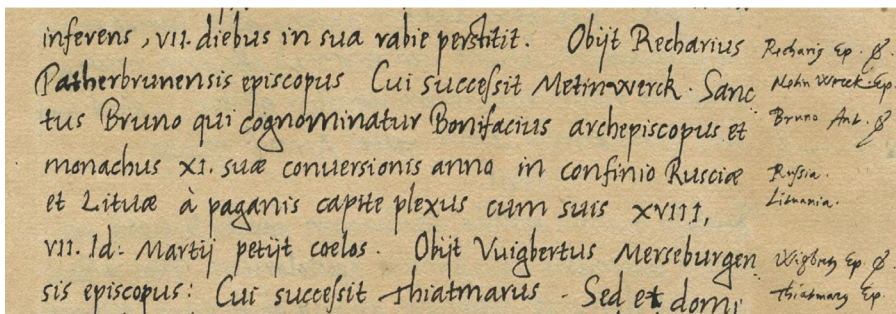 inferens, VII. diebus in sua rabie perstitit. Obijt Recharius
Patherbrunensis episcopus Cui successit Metinwerck. Sanc
tus Bruno qui cognominatur Bonifacius archepiscopus et
monachus XI. suæ conuersionis anno in confinio Rusciæ
et Lituæ à paganis capite plexus cum suis XVIII,
VII. Id: Martij petijt coelos. Obijt Vuigbertus Merseburgen
sis episcopus: Cui successit Thiatmarus. Sed et domi
Recharius Ep.
Ep.
Bruno
Russia.
Lituania.
Wigbertus Ep.
Thiatmarus Ep.